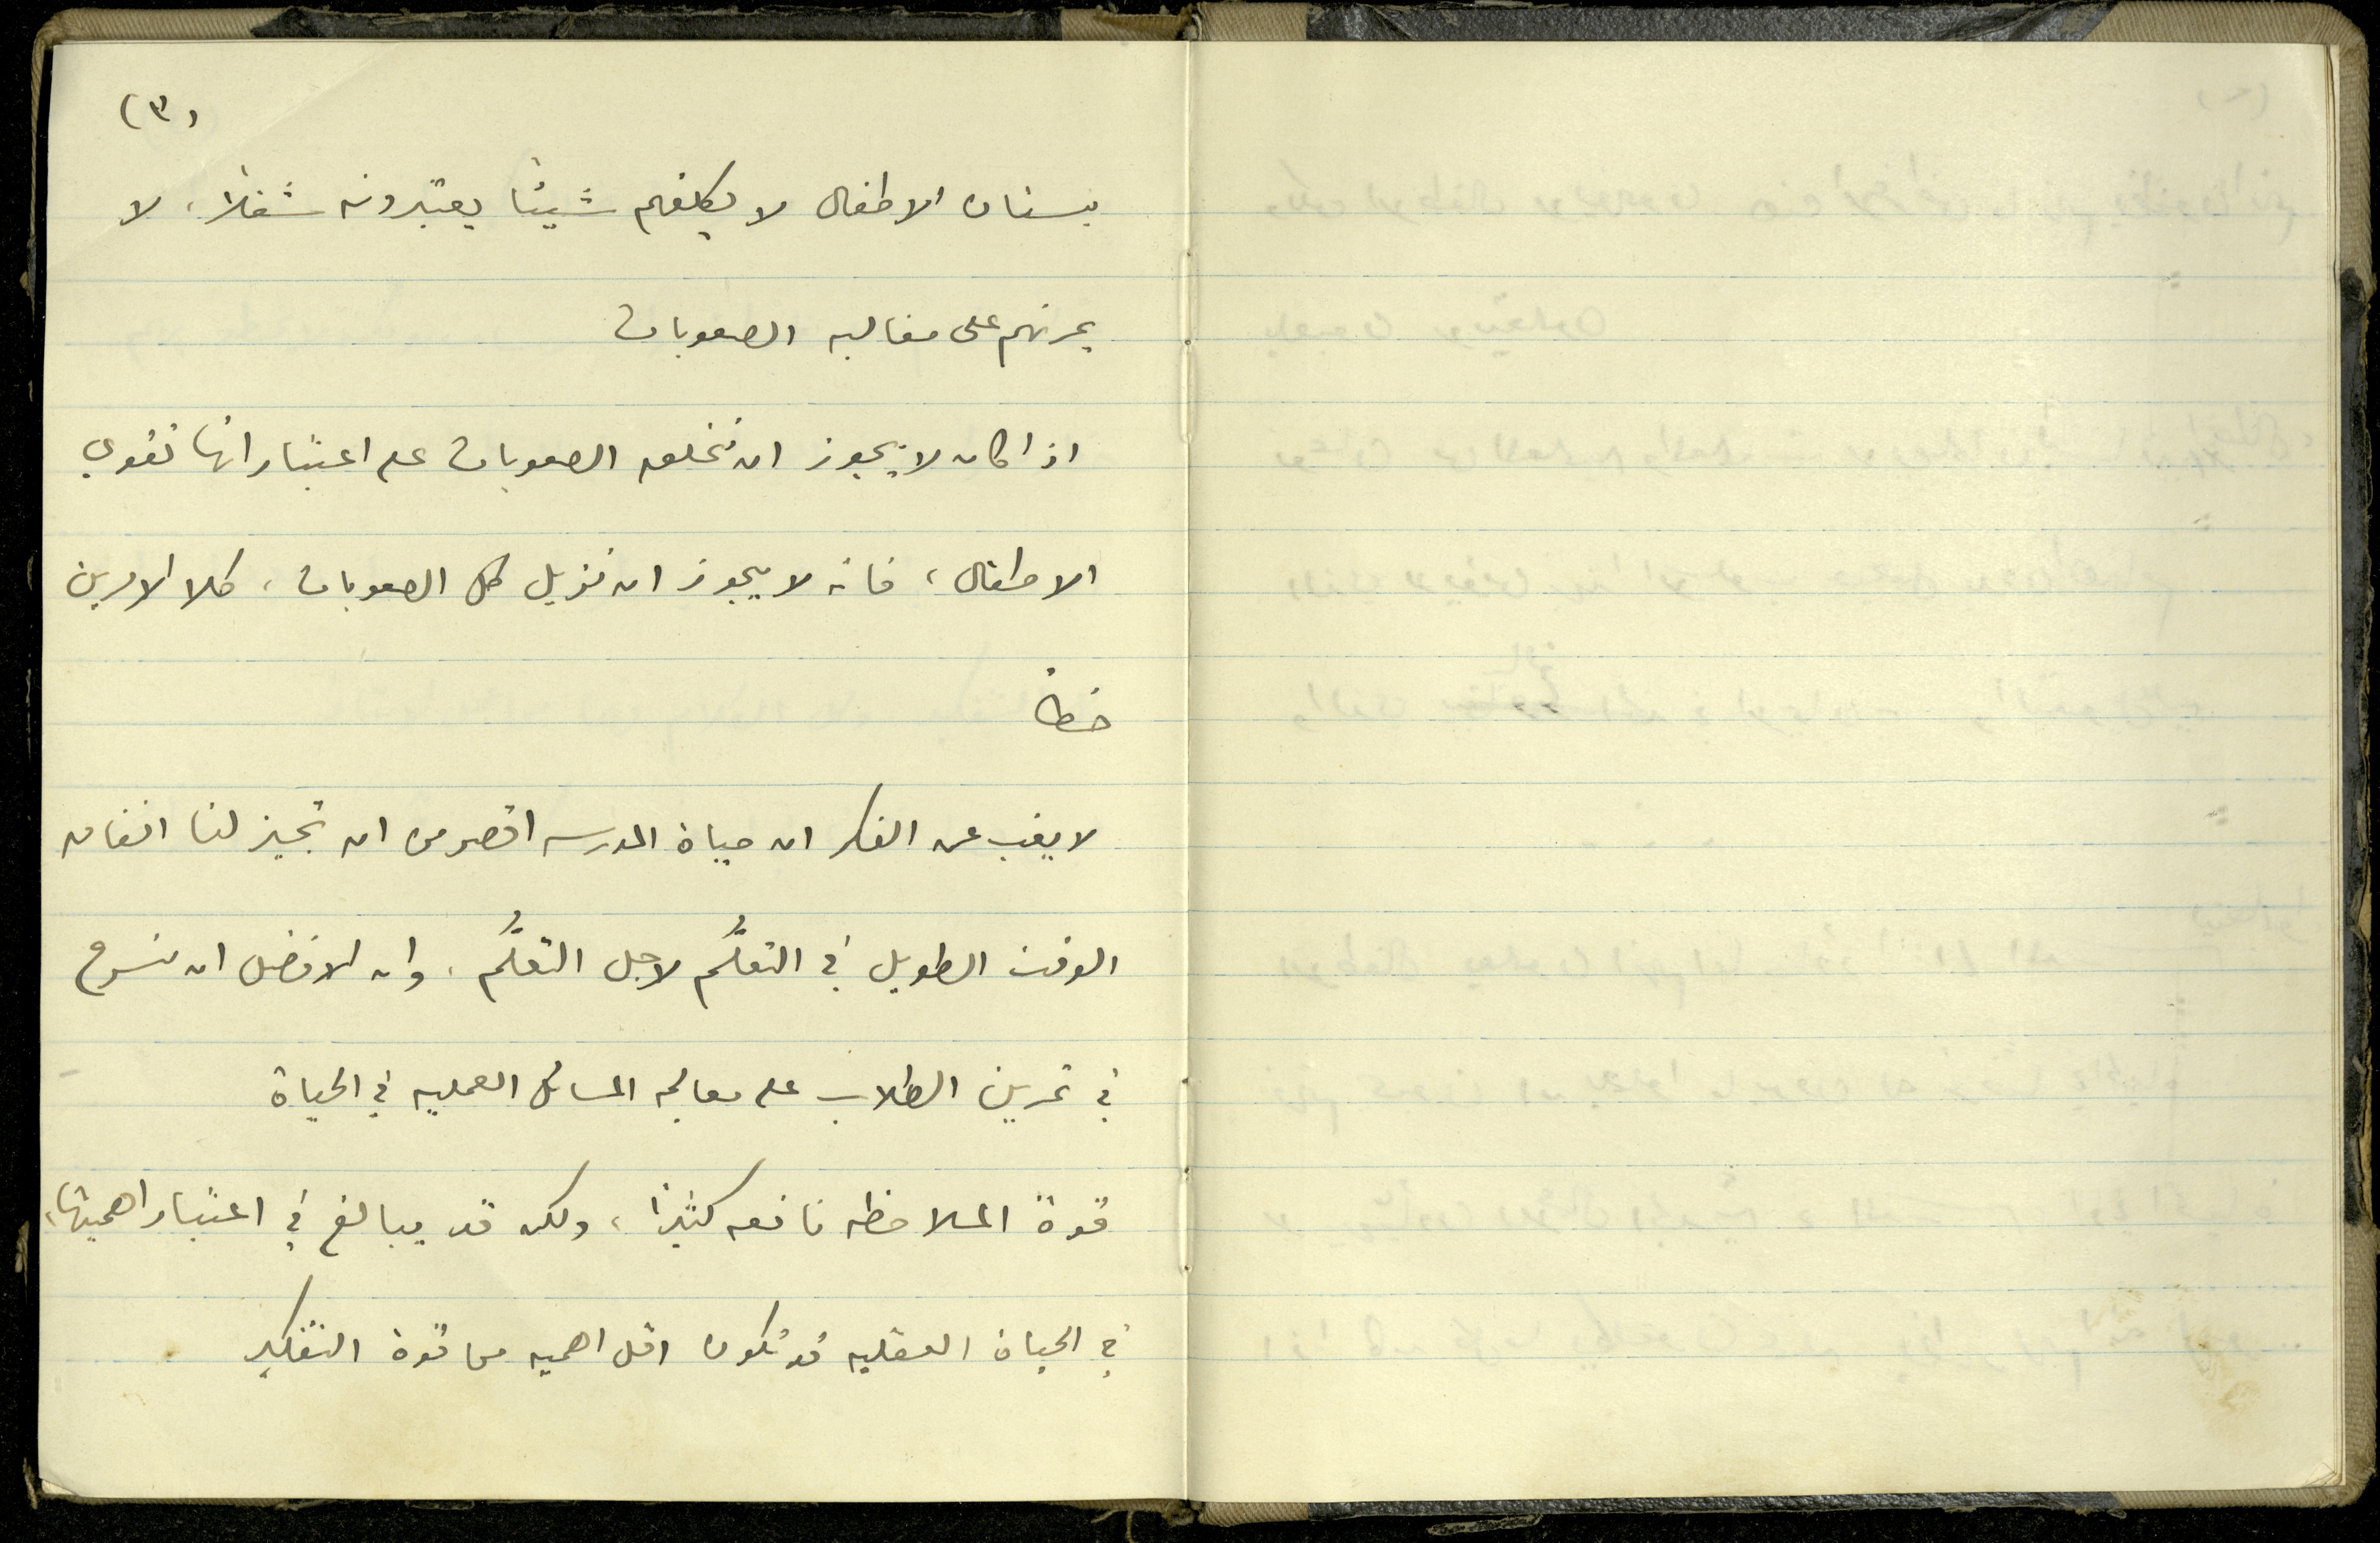 (٣)
بستان الاطفال لا يكلفهم شيئا يعتبرونه شغلاً، لا
يمرنهم على مغالبه الصعوبات
اذا كان لا يجوز ان نخلق الصعوبات على اعتبار انها تقوي
الاطفال، فانه لا يجوز ان نزيل كل الصعوبات، كلا الامرين
خطأ
لا يغب عن الفكر ان حياة المدرسه اقصر من ان تجيز لنا انفاق
الوقت الطويل في التعلُّم لاجل التعلُّم، وان الافضل ان نسرع
في تمرين الطلاب على معالجه المسائل العمليه في الحياة
قوة الملاحظه نافعه كثيراً، ولكن قد يبالغ في اعتبار اهميتها،
في الحياة العقليه قد تكون اقل اهميه من قوة التفكير